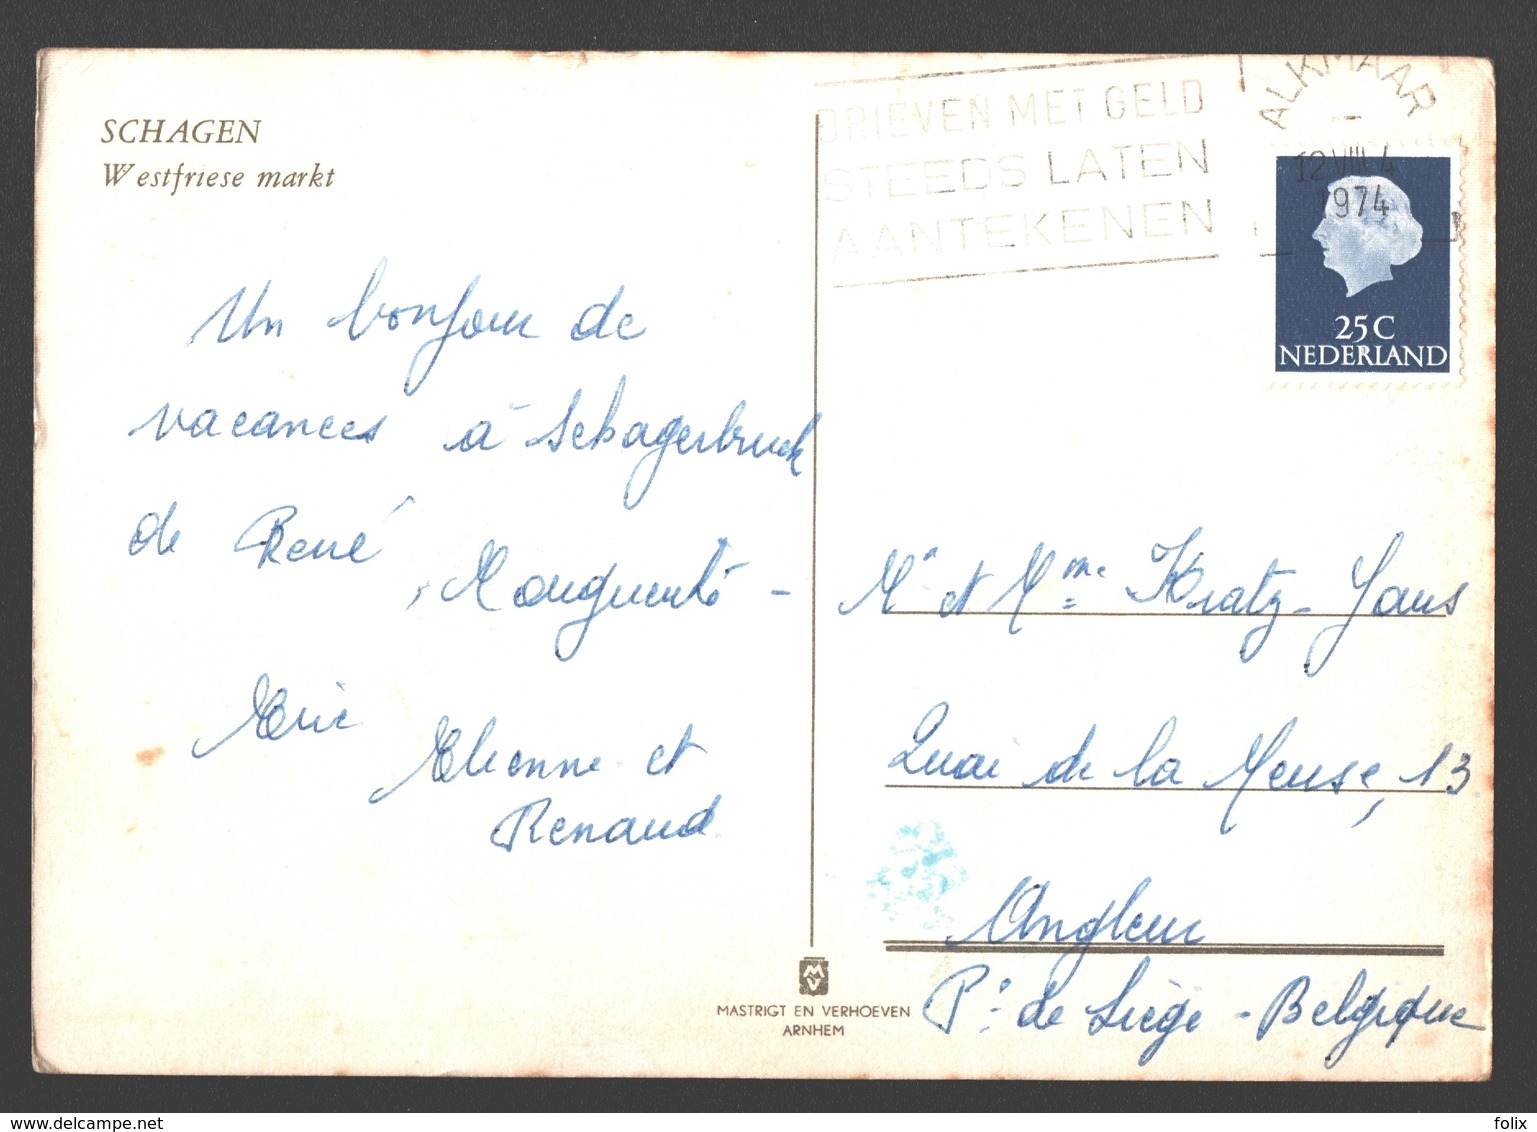 SCHAGEN
Westfriese markt
Un bonjour de
vacances à Schagerbruck
de René, Marguerite -
Eric
Etienne et
Renaud
BRIEVEN MET GELD
STEEDS LATEN
AANTEKENEN
ALKMAAR
12 VIII 4
1974
25 C
NEDERLAND
Mr et Mme Kratz-Jans
Quai de la Meuse, 13
Angleur
Pce de Liège - Belgique
MV
MASTRIGT EN VERHOEVEN
ARNHEM
www.delcampe.net
folix